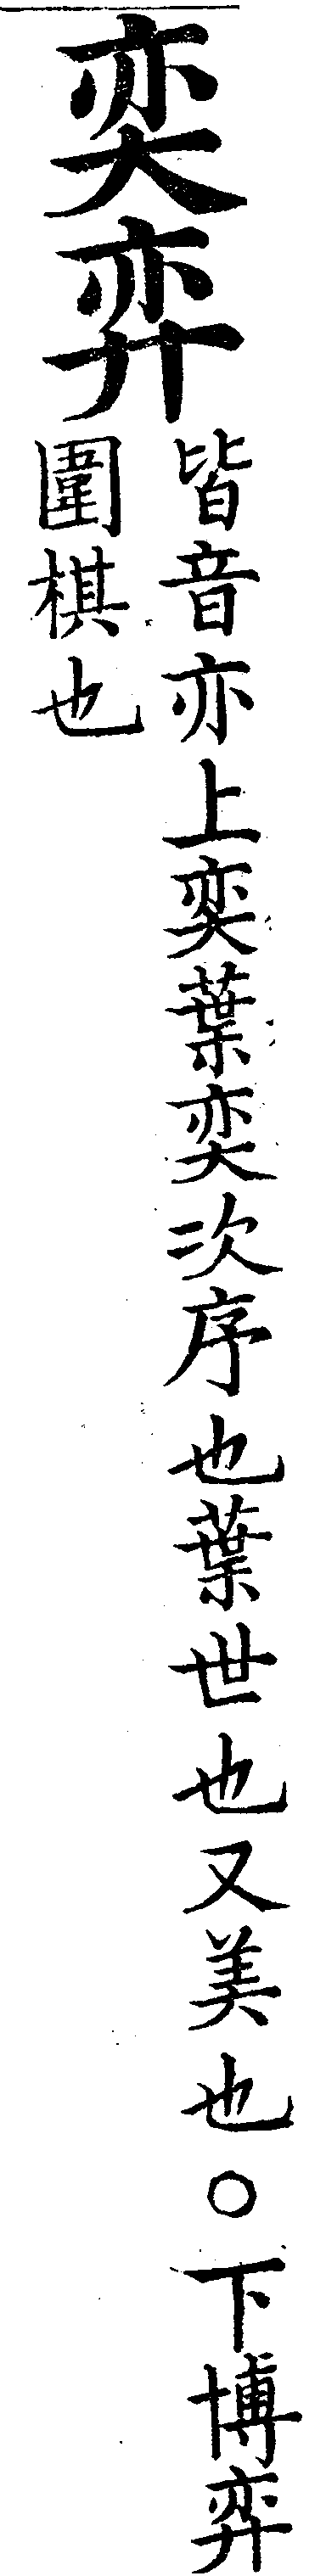 奕弈
皆音亦上奕葉奕次序也葉世也又美也○下博弈
圍棋也